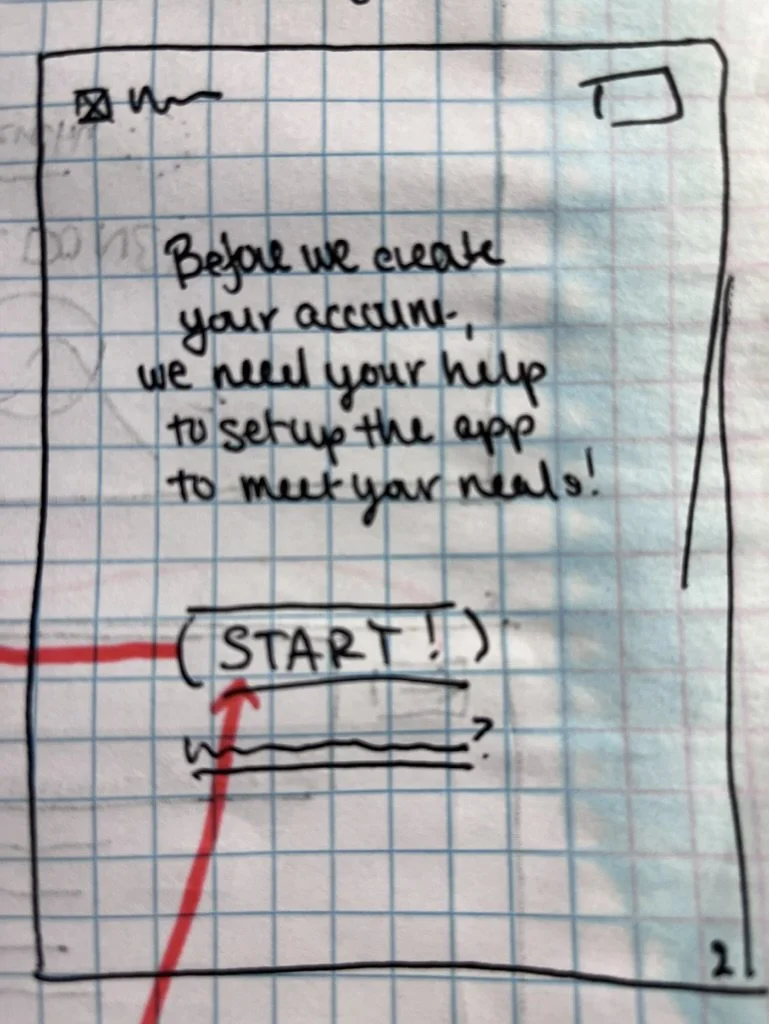 Before we create
your account,
we need your help
to setup the app
to meet your needs!
START!
?
2